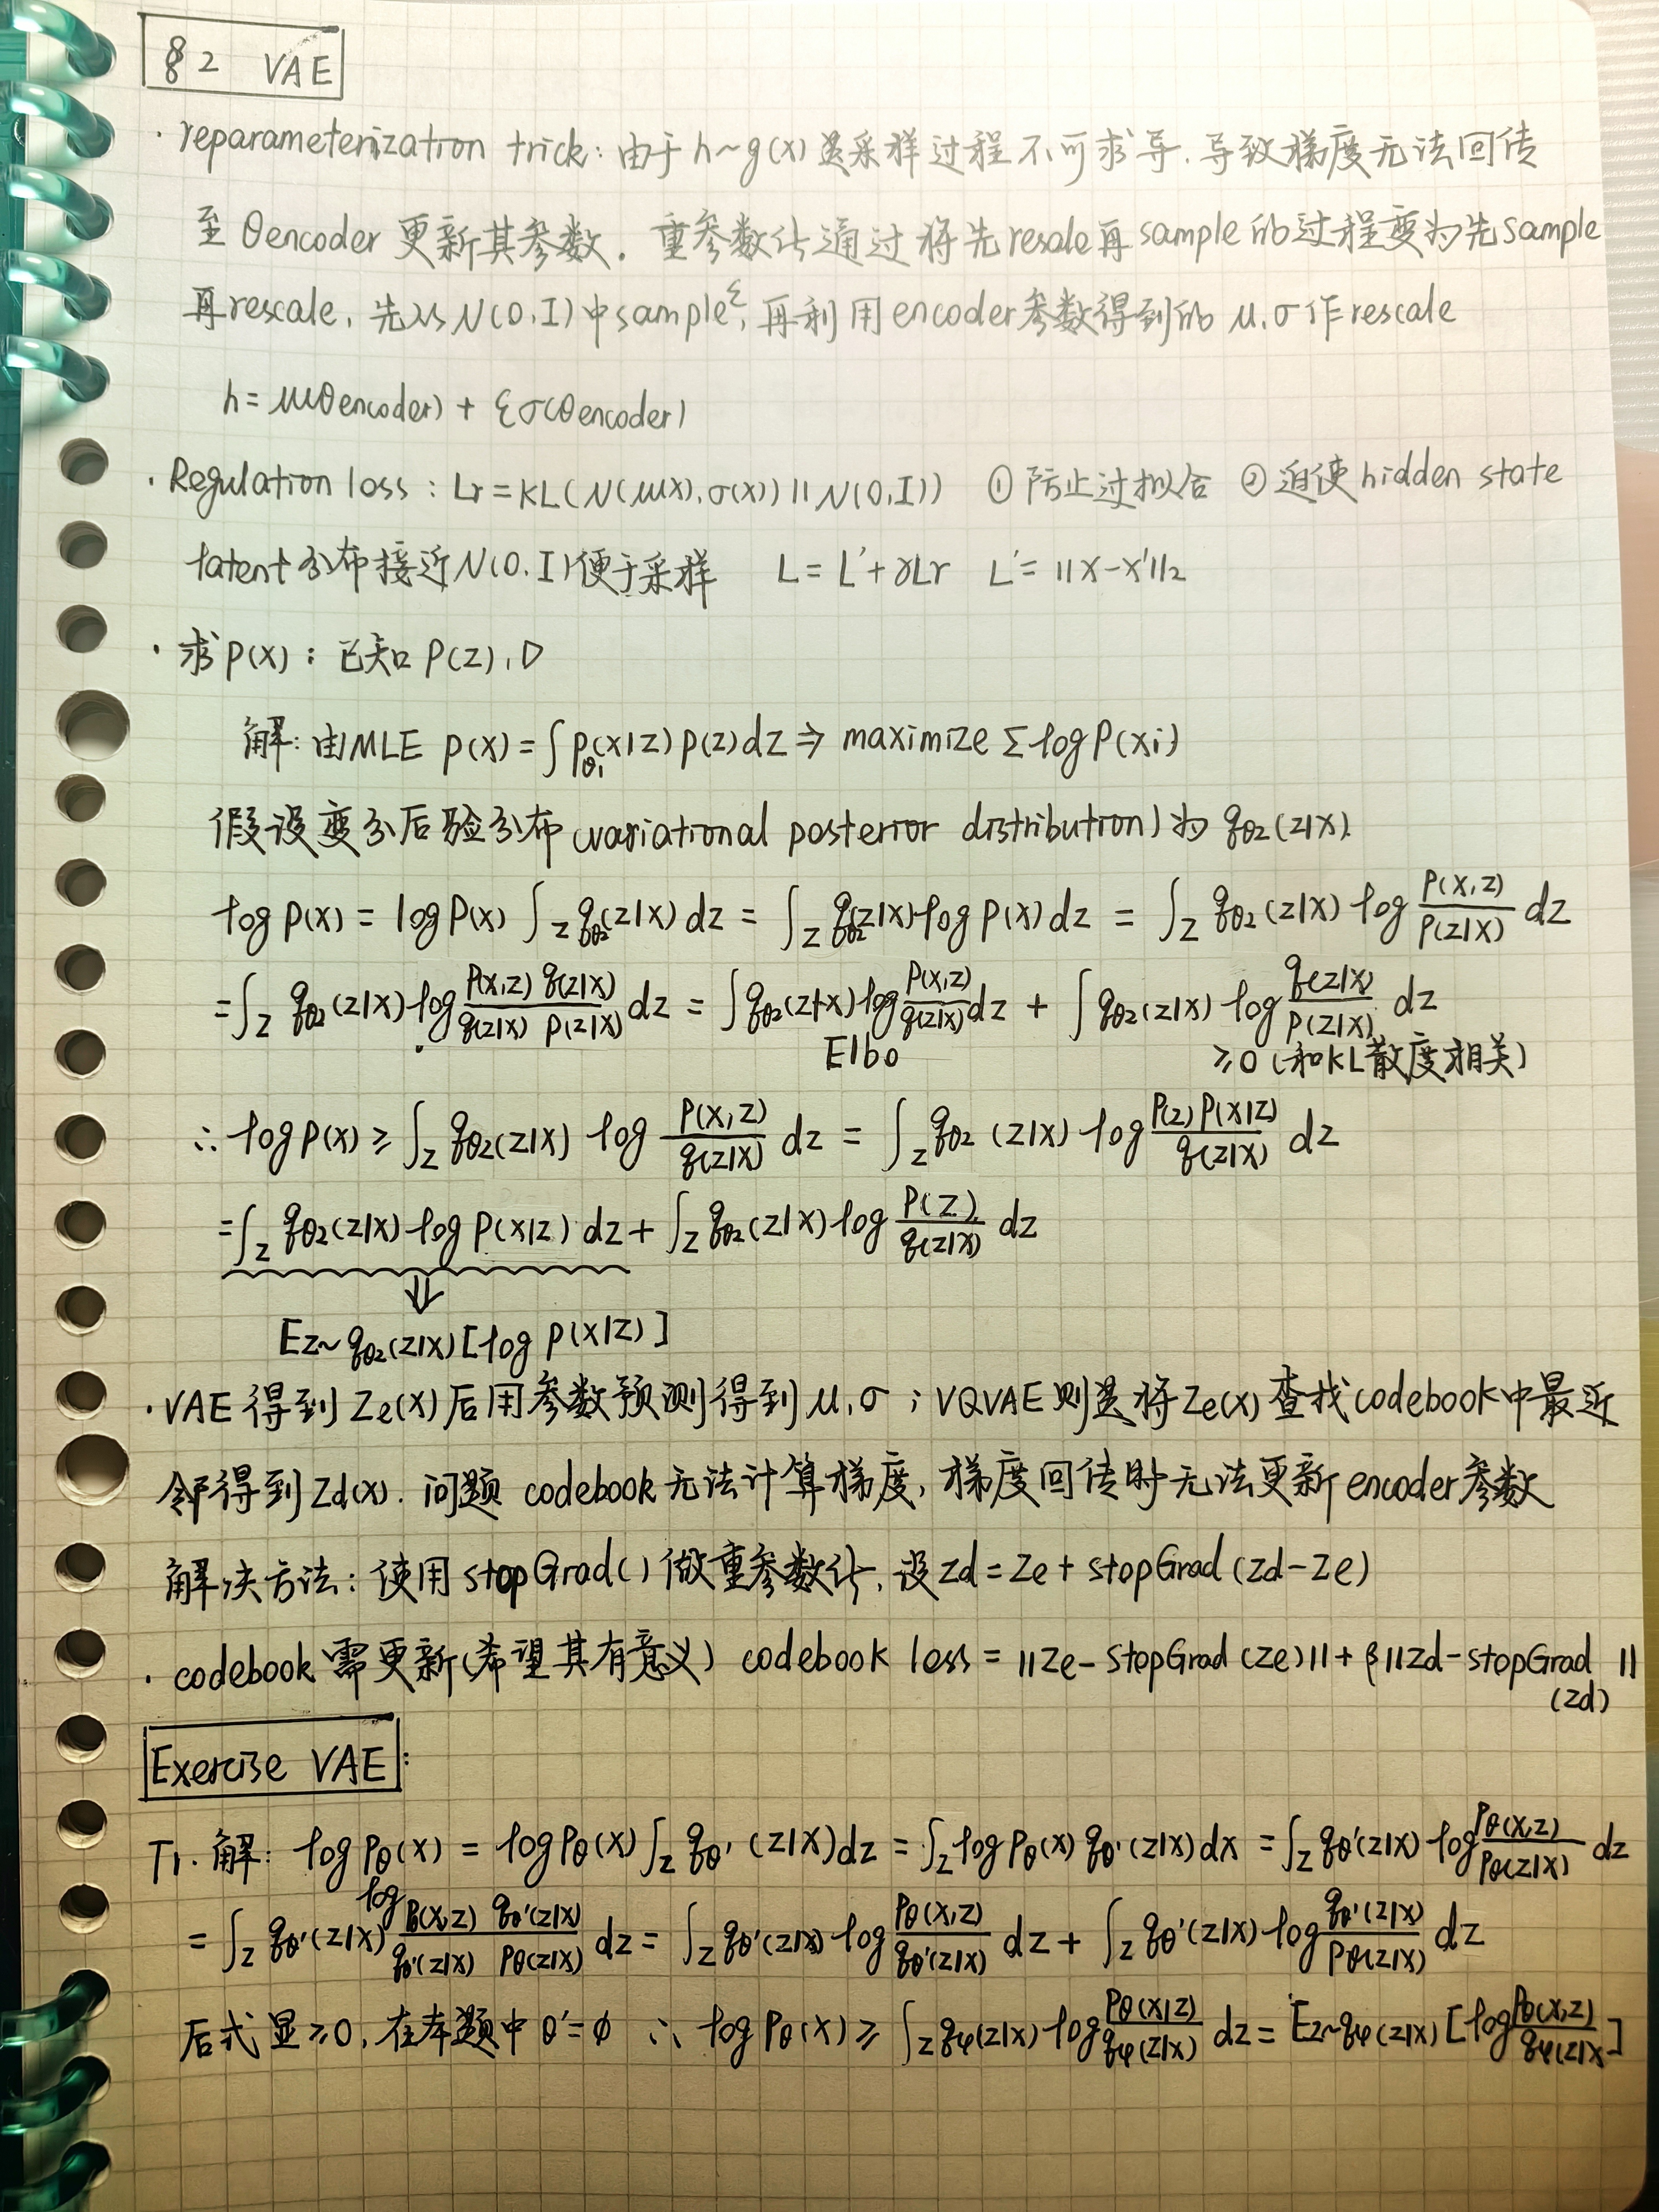 §2 VAE
· reparameterization trick: 由于 h~g(x) 是采样过程不可求导, 导致梯度无法回传
至 θencoder 更新其参数. 重参数化通过将先resale再sample的过程变为先sample
再rescale, 先从N(0,I)中sample ε, 再利用encoder参数得到的 μ,σ作rescale
h = μ(θencoder) + εσ(θencoder)
· Regulation loss : Lr = KL(N(μ(x),σ(x)) || N(0,I)) ① 防止过拟合 ② 迫使hidden state
latent分布接近N(0,I)便于采样 L = L' + γLr L' = ||x-x'||₂
· 求P(X) : 已知 P(Z), D
解: 由MLE P(X) = ∫Pθ₁(X|Z) P(Z)dZ ⇒ maximize Σ log P(xi)
假设变分后验分布(variational posterior distribution)为 qθ2(z|x).
log P(X) = log P(X) ∫z qθ2(z|x) dz = ∫z qθ2(z|x) log P(X) dz = ∫z qθ2(z|x) log P(X,Z)/P(Z|X) dz
= ∫z qθ2(z|x) log P(X,Z) q(z|x)/q(z|x) P(z|x) dz = ∫qθ2(z|x) log P(X,Z)/q(z|x) dz + ∫qθ2(z|x) log q(z|x)/P(z|x) dz
Elbo ≥0 (和KL散度相关)
∴ log P(X) ≥ ∫z qθ2(z|x) log P(X,Z)/q(z|x) dz = ∫z qθ2(z|x) log P(z)P(X|Z)/q(z|x) dz
= ∫z qθ2(z|x) log P(X|Z) dz + ∫z qθ2(z|x) log P(Z)/q(z|x) dz
⇓
Ez~qθ2(z|x)[log P(X|Z)]
· VAE 得到 Ze(x) 后用参数预测得到 μ,σ ; VQVAE则是将Ze(x) 查找codebook中最近
邻得到Zd(x). 问题 codebook无法计算梯度, 梯度回传时无法更新encoder参数
解决方法: 使用 stopGrad() 做重参数化, 设zd = Ze + stopGrad(zd-Ze)
· codebook 需更新(希望其有意义) codebook loss = ||Ze-StopGrad(Ze)|| + β||Zd-stopGrad(zd)||
Exercise VAE:
T1. 解: log Pθ(x) = log Pθ(x) ∫z qθ'(z|x)dz = ∫z log Pθ(x) qθ'(z|x) dx = ∫z qθ'(z|x) log Pθ(x,z)/Pθ(z|x) dz
= ∫z qθ'(z|x) log Pθ(x,z) qθ'(z|x)/qθ'(z|x) Pθ(z|x) dz = ∫z qθ'(z|x) log Pθ(x,z)/qθ'(z|x) dz + ∫z qθ'(z|x) log qθ'(z|x)/Pθ(z|x) dz
后式显≥0, 在本题中 θ'=φ ∴ log Pθ(x) ≥ ∫z qφ(z|x) log Pθ(x|z)/qφ(z|x) dz = Ez~qφ(z|x) [log Pθ(x,z)/qφ(z|x]